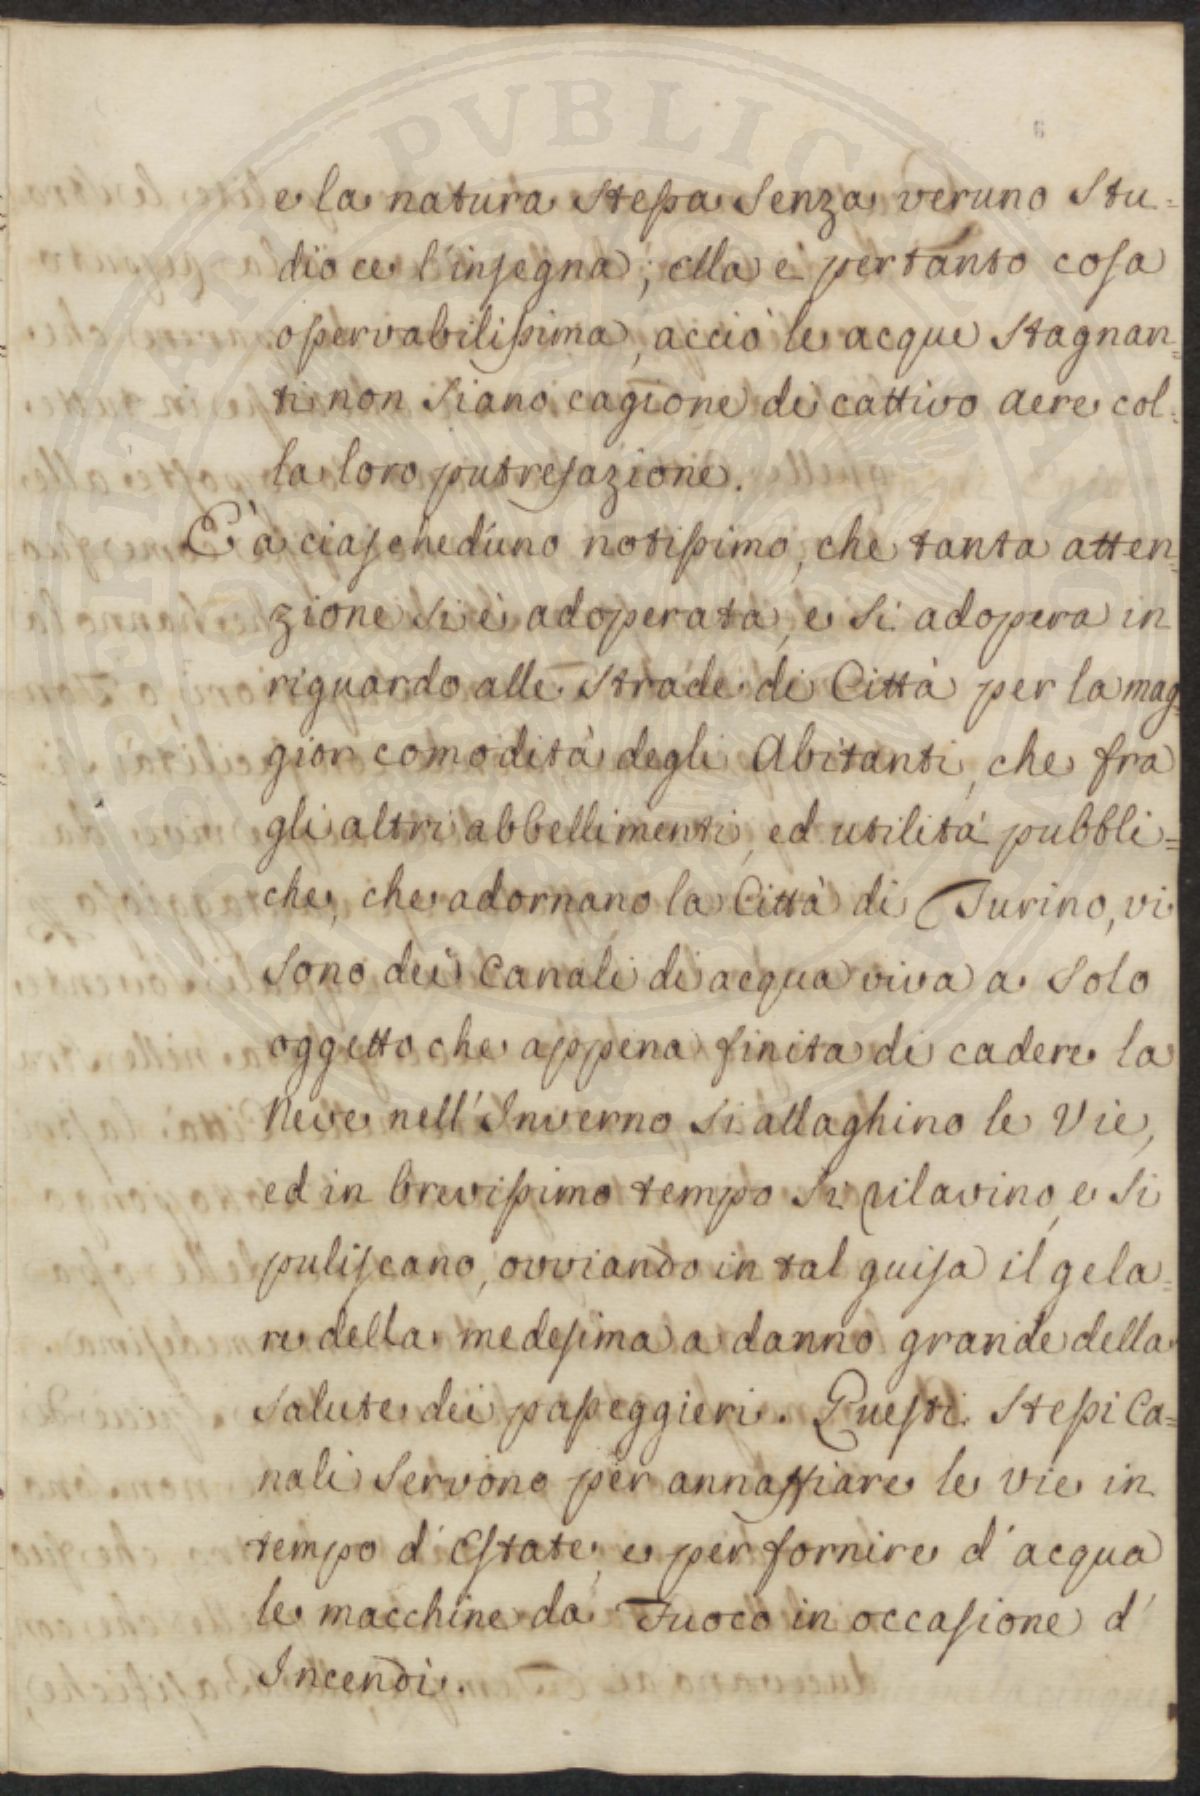 e la natura stessa senza veruno stu=
dio ce l'insegna; ella è pertanto cosa
osservabilissima, acciò le acque stagnan=
ti non siano cagione di cattivo aere col=
la loro putrefazione.
E' a ciascheduno notissimo, che tanta atten=
zione si è adoperata, e si adopera in
riguardo alle strade di Città per la mag=
gior comodità degli Abitanti, che fra
gli altri abbellimenti, ed utilità pubbli=
che, che adornano la Città di Turino, vi
sono dei Canali di acqua viva a solo
oggetto che appena finita di cadere la
Neve nell'Inverno si allaghino le Vie,
ed in brevissimo tempo si rilavino, e si
puliscano, ovviando in tal guisa il gela=
re della medesima a danno grande della
salute dei passeggieri. Questi stessi Ca=
nali servono per annaffiare le vie in
tempo d'Estate, e per fornire d'acqua
le macchine da Fuoco in occasione d'
Incendi.
PVBLICA